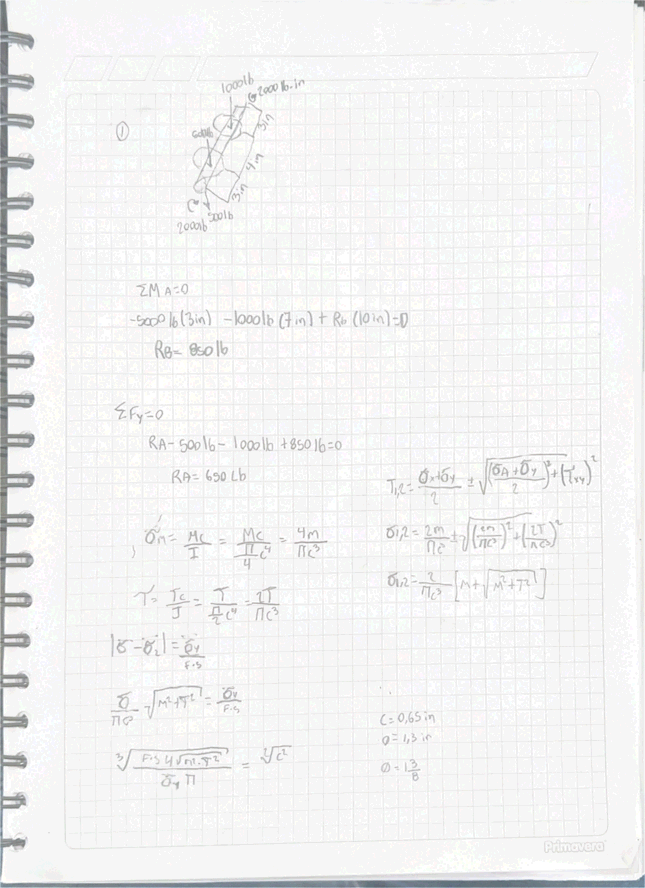 ①
1000lb
2000lb.in
3in
4in
3in
500lb
2000lb
ΣMA=0
-5000 lb (3in) -1000lb (7in) + Rb (10in)=0
RB= 850lb
ΣFy=0
RA-500lb- 1000lb +850lb=0
RA= 650Lb
σm = Mc/I = Mc/(π/4 c⁴) = 4m/πc³
τ = Tc/J = T/(π/2 c⁴) = 2T/πc³
|σ - σ₂| = σy/F.S
√(M²+T²) = σy/F.S
∛(F.S 4√(m².T²)/σy π) = ∛c²
σ1,2 = 2m/πc ± √((2m/πc³)² + (2T/πc³)²)
σ1,2 = 2/πc³ [M+√(M²+T²)]
C=0,65in
Ø=1,3 in
Ø=1 3/8
Primavera